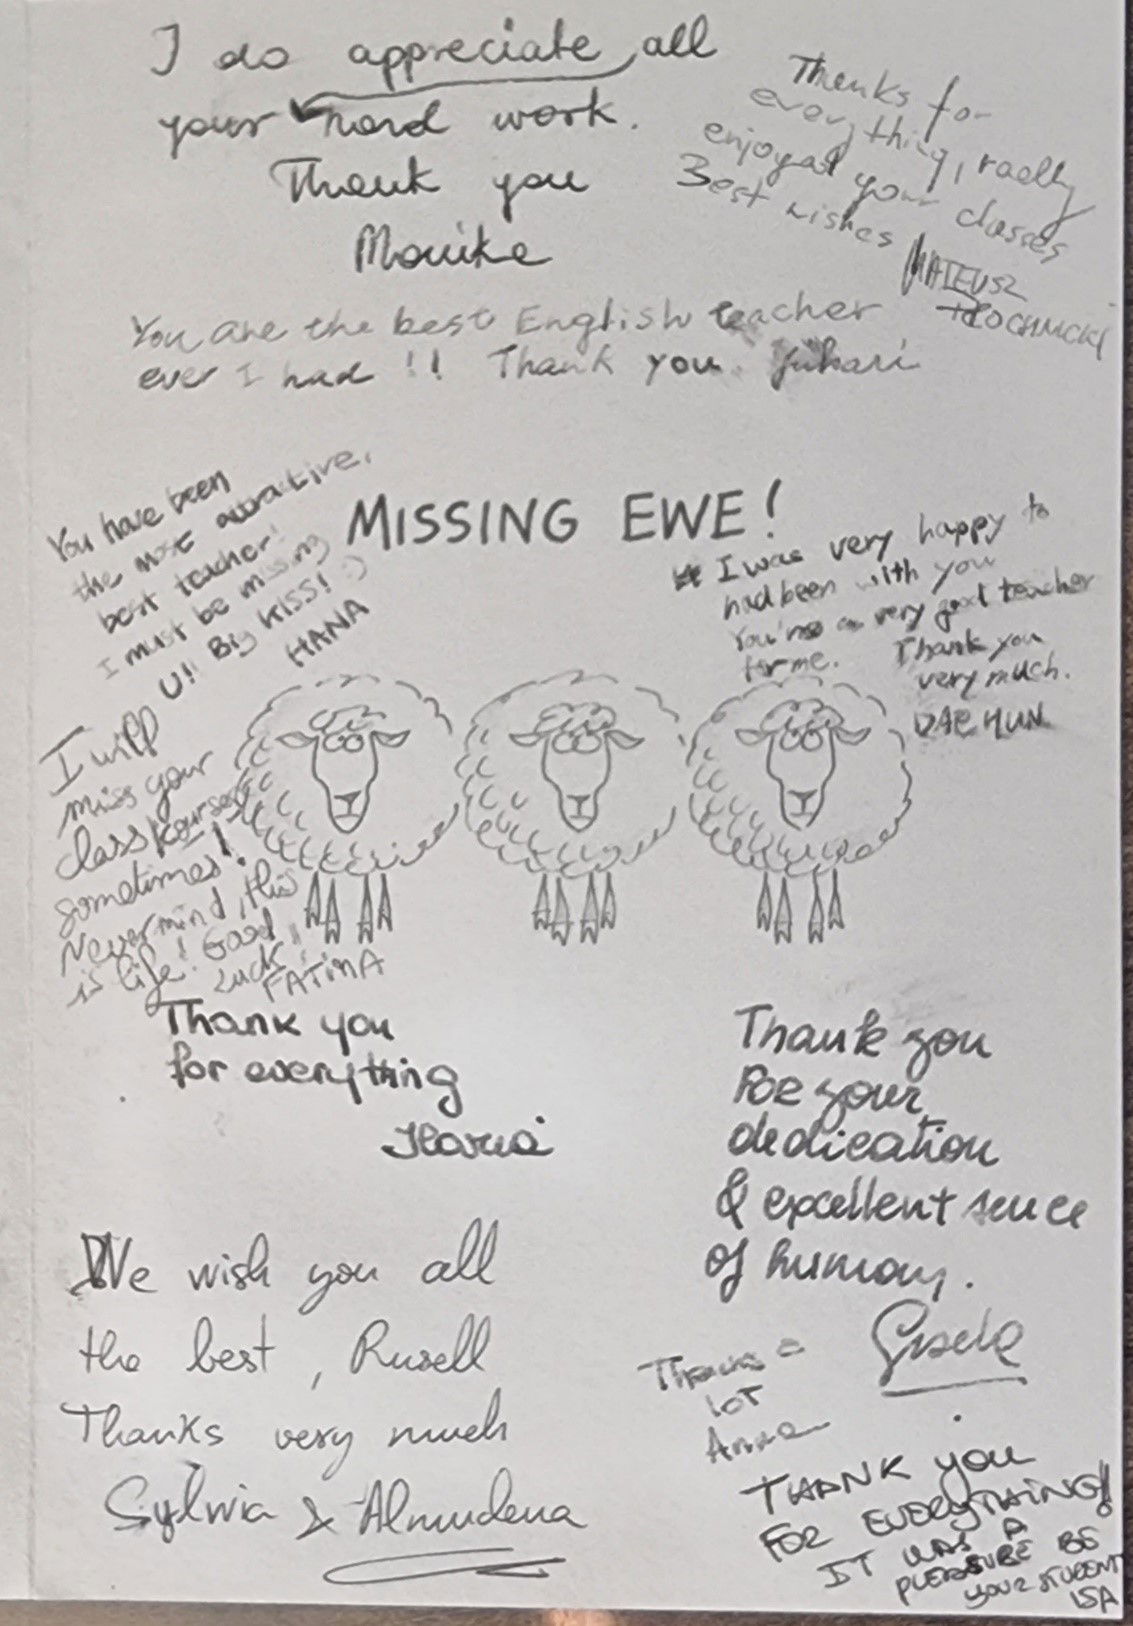 I do appreciate all
your hard work.
Thank you
Monika
Thanks for
everything, really
enjoyed your classes
Best wishes
MATEUSZ
You are the best English teacher
ever I had !! Thank you.
You have been
the most attractive,
best teacher!
I must be missing
U!! Big KISS! :)
HANA
MISSING EWE!
I was very happy to
had been with you
You're a very good teacher
for me. Thank you
very much.
DAEHUN
I will
miss your
class
sometimes!
Nevermind, this
is life! Good
Luck!!
FATIMA
Thank you
for everything
Ilaria
Thank you
FOR your
dedication
& excellent sence
of humour.
Gisela
We wish you all
the best, Rusell
Thanks very much
Sylwia & Almudena
Thanks a
lot
Anna
THANK you
FOR EVERYTHING!!
IT WAS A
PLEASURE BE
YOUR STUDENT
ISA